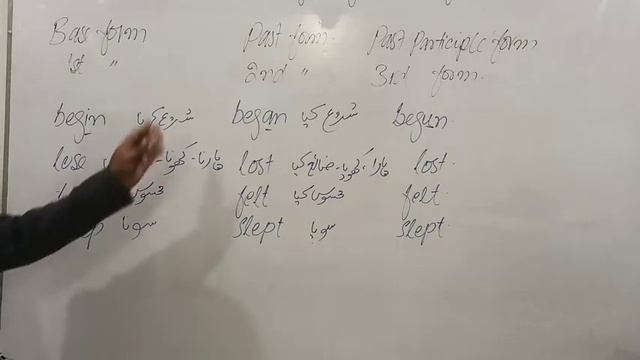 Base form Past form Past Participle form
1st " 2nd " 3rd form.
begin شروع کرنا began شروع کیا begun.
lose ہارنا۔ کھونا۔ lost ہارا، کھویا۔ ضائع کیا lost.
محسوس felt محسوس کیا felt.
سونا slept سویا slept.